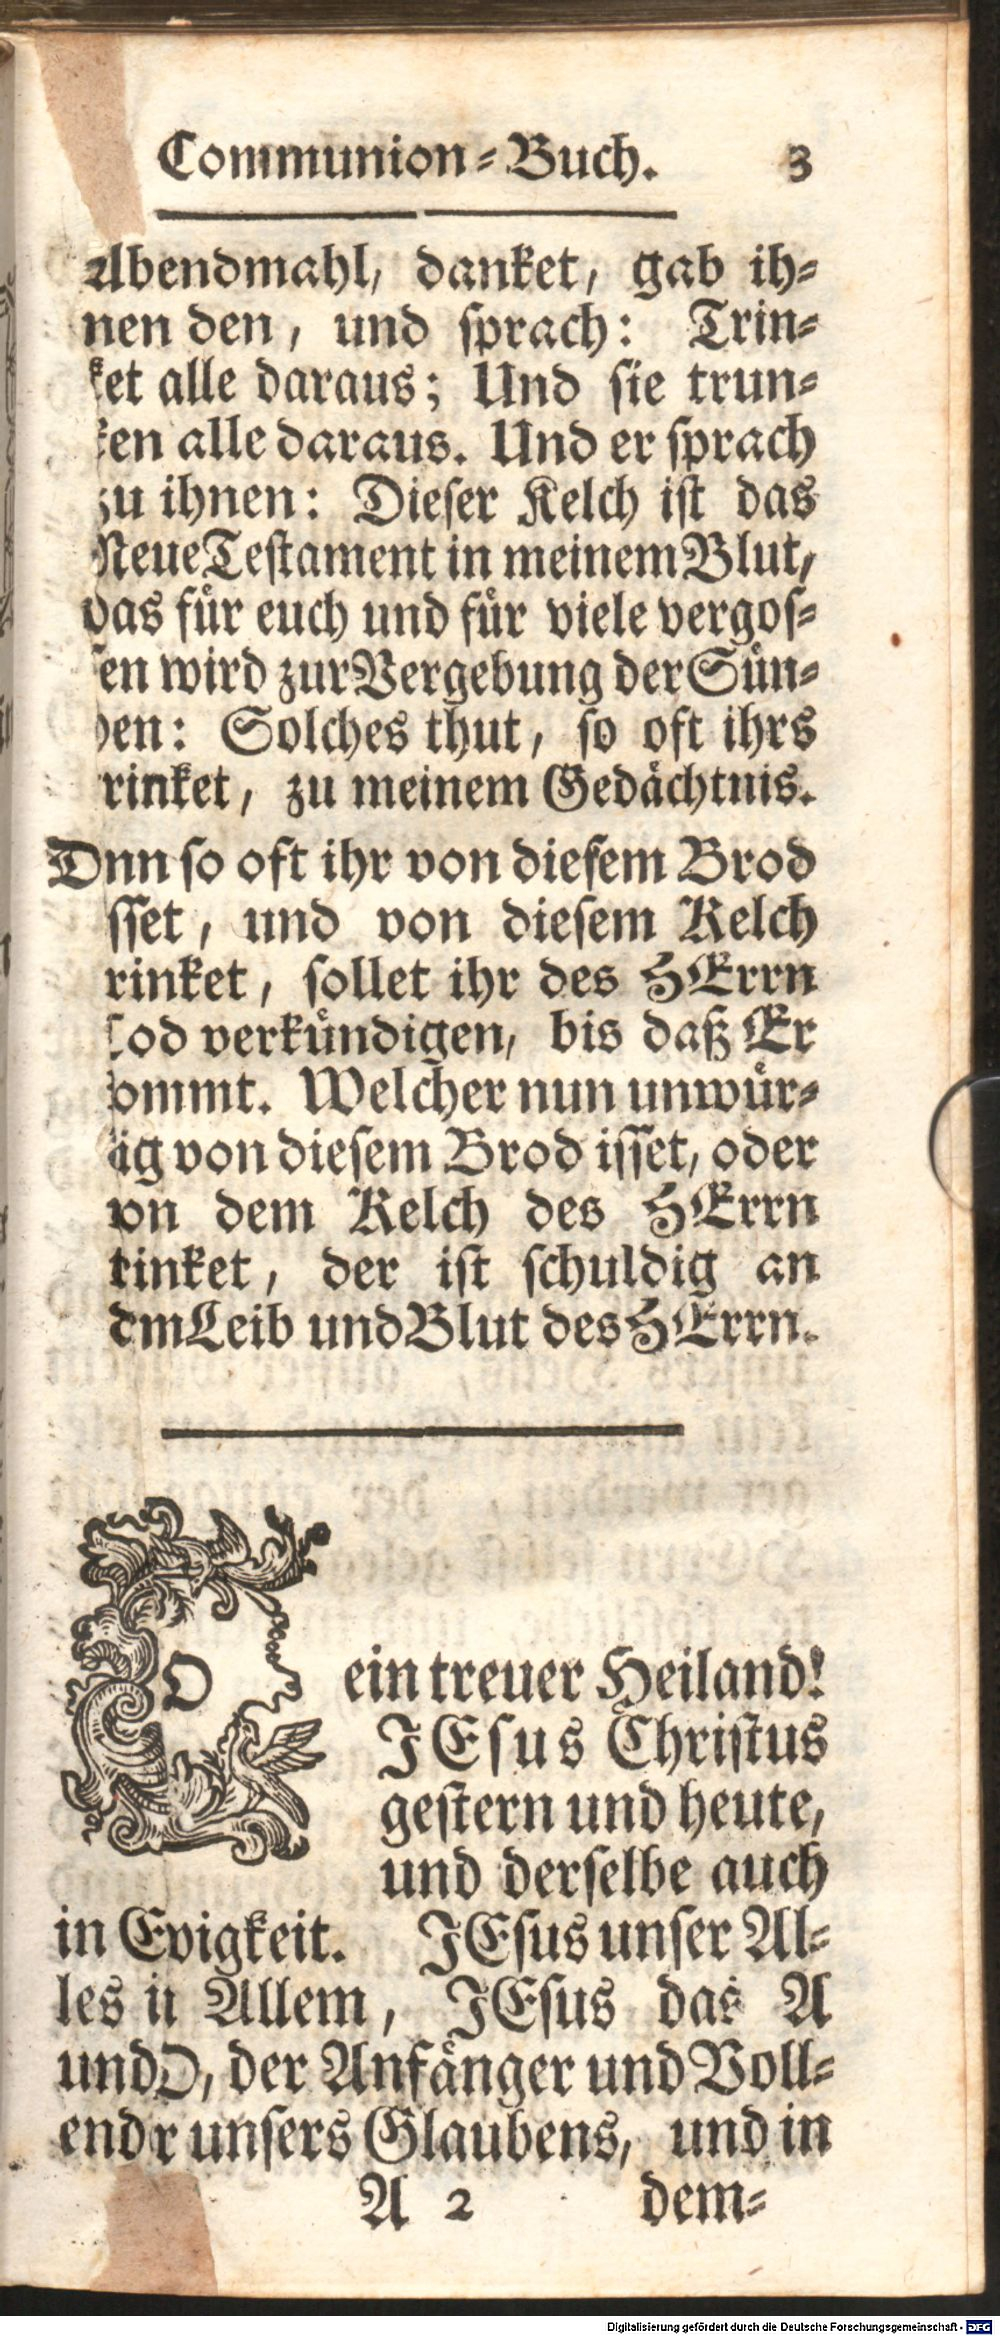 Communion-Buch. 3
Abendmahl, danket, gab ih-
nen den, und sprach: Trin-
ket alle daraus; Und sie trun-
ken alle daraus. Und er sprach
zu ihnen: Dieser Kelch ist das
Neue Testament in meinem Blut,
das für euch und für viele vergos-
sen wird zur Vergebung der Sün-
den: Solches thut, so oft ihrs
rinket, zu meinem Gedächtnis.
Dnn so oft ihr von diesem Brod
sset, und von diesem Kelch
rinket, sollet ihr des HErrn
Tod verkündigen, bis daß Er
kommt. Welcher nun unwür-
dig von diesem Brod isset, oder
von dem Kelch des HErrn
rinket, der ist schuldig an
dm Leib und Blut des HErrn.
O ein treuer Heiland!
JEsus Christus
gestern und heute,
und derselbe auch
in Evigkeit. JEsus unser Al-
les in Allem, JEsus das A
und O, der Anfänger und Voll-
endr unsers Glaubens, und in
A 2 dem-
Digitalisierung gefördert durch die Deutsche Forschungsgemeinschaft - DFG